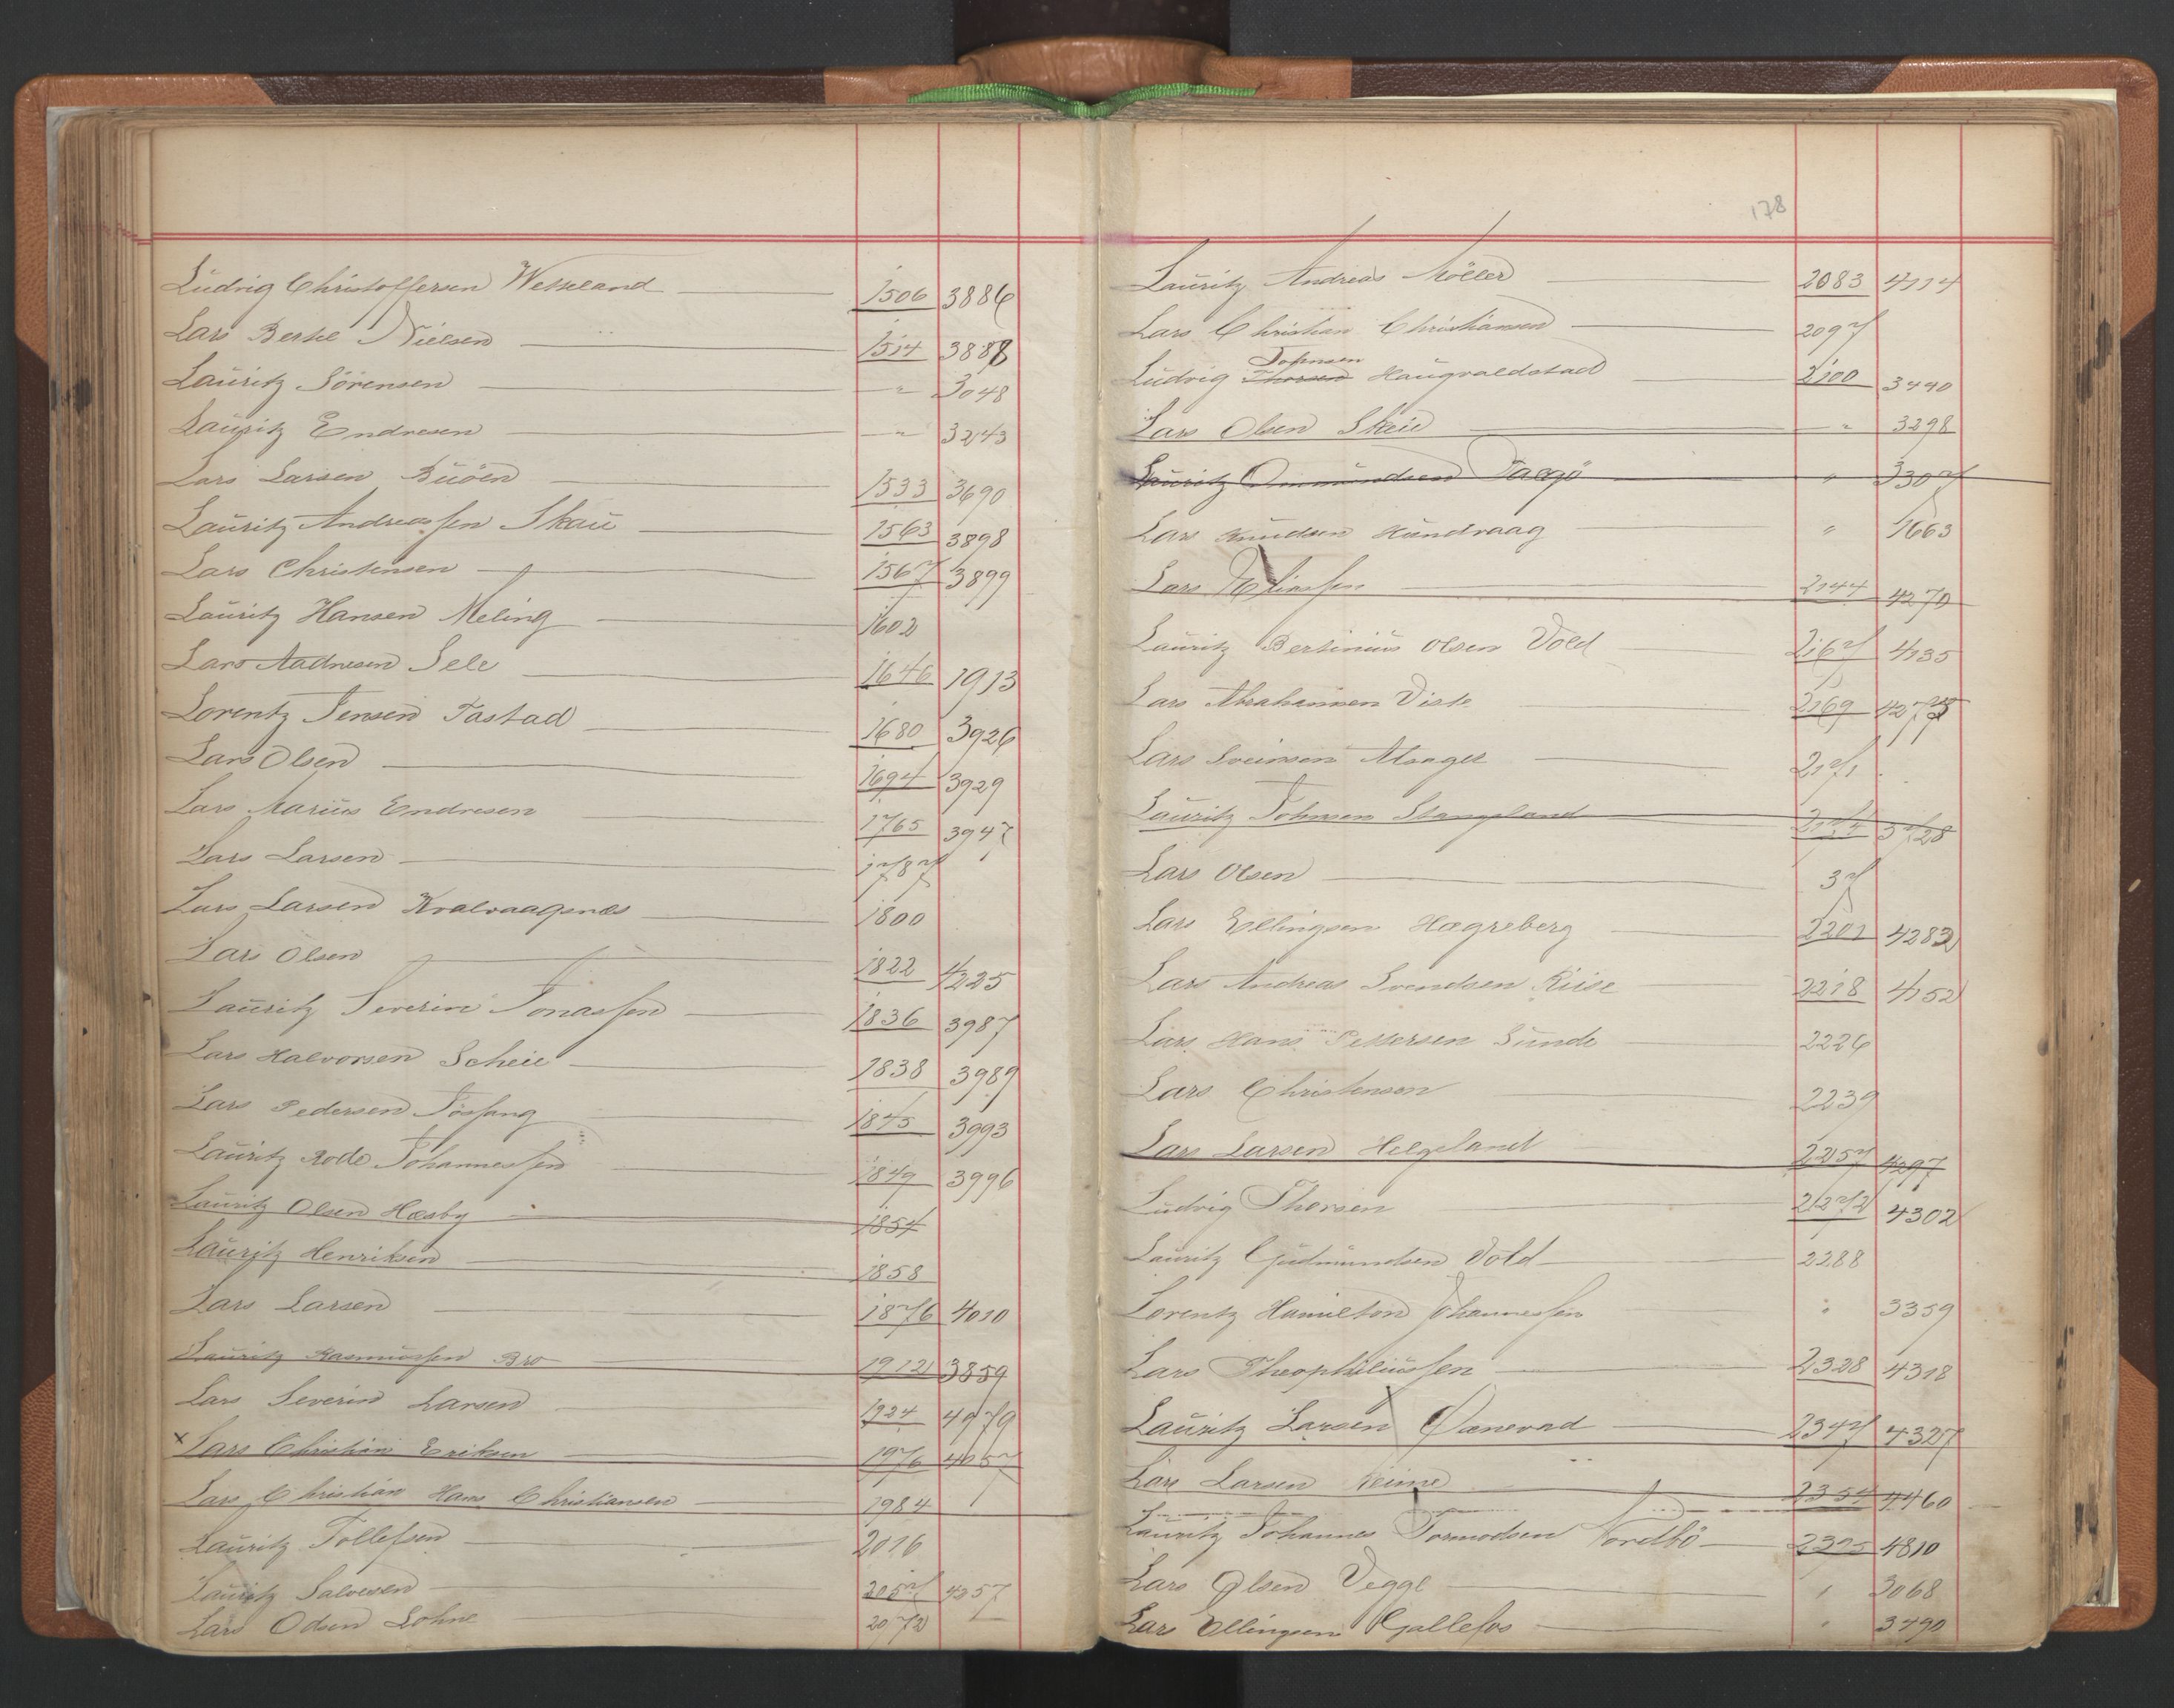 Ludvig Christoffersen Wetteland 1506 3886
Lars Bertel Nielsen 1514 3888
Lauritz Sörensen " 3048
Lauritz Endresen " 3243
Lars Larsen Buöen 1533 3690
Lauritz Andreassen Skau 1563 3898
Lars Christensen 1567 3899
Lauritz Hansen Meling 1602
Lars Aadnesen Sele 1646 1913
Lorentz Jensen Tastad 1680 3926
Lars Olsen 1694 3929
Lars Marius Endresen 1765 3947
Lars Larsen 1787
Lars Larsen Kvalvaagnæs 1800
Lars Olsen 1822 4225
Lauritz Severin Jonassen 1836 3987
Lars Halvorsen Scheie 1838 3989
Lars Pedersen Jösang 1845 3993
Lauritz Rode Johannessen 1849 3996
Lauritz Olsen Hæsby 1854
Lauritz Henriksen 1858
Lars Larsen 1876 4010
Lauritz Rasmussen Bro 1912 3859
Lars Severin Larsen 1924
x Lars Christian Eriksen 1976
Lars Christian Hans Christiansen 1984
Lauritz Tollefsen 2016
Lauritz Salvesen 2057 4257
Lars Odsen Lohne 2072
178
Lauritz Andreas Möller 2083 4114
Lars Christian Christiansen 2097
Johnsen
Ludvig Thorsen Haugvaldstad 2100 3440
Lars Olsen Skeie " 3298
Lauritz Ommundsen Talgö " 3307
Lars Knudsen Hundvaag " 1663
Lars Eliassen 2144 4270
Lauritz Bertinius Olsen Vold 2167 4135
Lars Abrahamsen Viste 2169
Lars Sveinsen Alsager 2171
Lauritz Johnsen Stangeland 2174 3728
Lars Olsen 37
Lars Ellingsen Hægreberg 2201 4283
Lars Andreas Svendsen Riise 2218 4152
Lars Hans Pettersen Sunde 2226
Lars Christensen 2239
Lars Larsen Helgeland 2257 4297
Ludvig Thorsen 2272 4302
Lauritz Gudmundsen Vold 2288
Lorentz Hamilton Johannessen " 3359
Lars Theophiliussen 2328 4318
Lauritz Larsen Qvanevad 2347 4327
Lars Larsen Reime 2354 4460
Lauritz Johannes Tormodsen Nordbö 2395 4810
Lars Olsen Vegge " 3068
Lars Ellingsen Gallefos " 3490